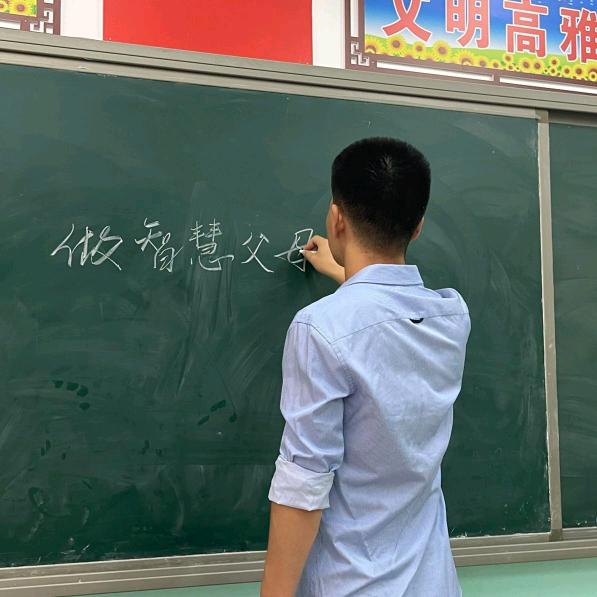 文明高雅
做智慧父母